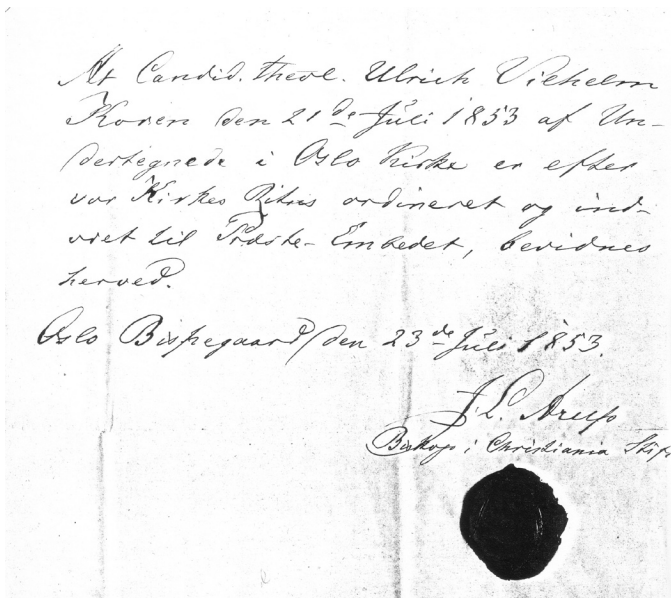 At Candid. theol. Ulrich Vilhelm
Koren den 21de Juli 1853 af Un-
dertegnede i Oslo Kirke er efter
vor Kirkes Ritus ordineret og ind-
viet til Præste-Embedet, bevidnes
herved.
Oslo Bispegaard den 23de Juli 1853.
J. L. Arup
Biskop i Christiania Stift